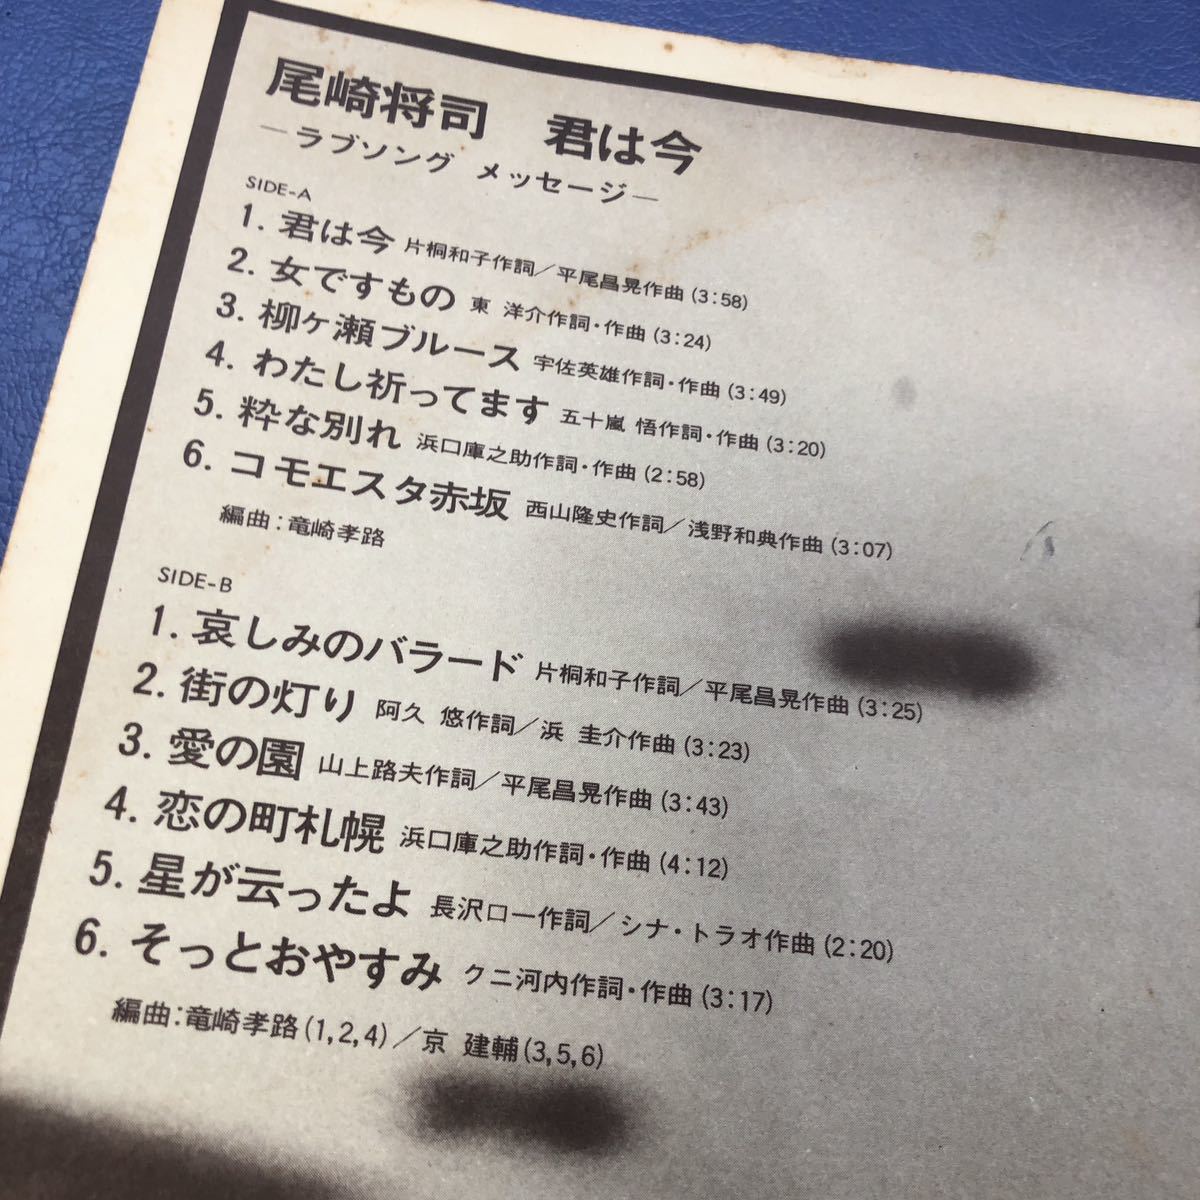 尾崎将司　君は今
―ラブソング メッセージ―
SIDE-A
1. 君は今 片桐和子作詞／平尾昌晃作曲 (3:58)
2. 女ですもの 東 洋介作詞・作曲 (3:24)
3. 柳ヶ瀬ブルース 宇佐英雄作詞・作曲 (3:49)
4. わたし祈ってます 五十嵐 悟作詞・作曲 (3:20)
5. 粋な別れ 浜口庫之助作詞・作曲 (2:58)
6. コモエスタ赤坂 西山隆史作詞／浅野和典作曲 (3:07)
編曲：竜崎孝路
SIDE-B
1. 哀しみのバラード 片桐和子作詞／平尾昌晃作曲 (3:25)
2. 街の灯り 阿久 悠作詞／浜 圭介作曲 (3:23)
3. 愛の園 山上路夫作詞／平尾昌晃作曲 (3:43)
4. 恋の町札幌 浜口庫之助作詞・作曲 (4:12)
5. 星が云ったよ 長沢ロー作詞／シナ・トラオ作曲 (2:20)
6. そっとおやすみ クニ河内作詞・作曲 (3:17)
編曲：竜崎孝路 (1,2,4)／京 建輔 (3,5,6)